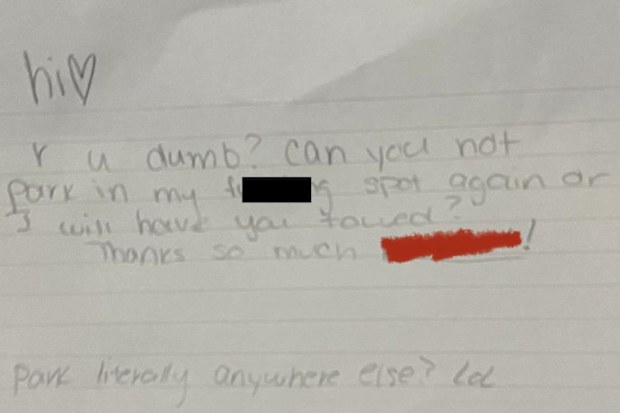 hi♡
r u dumb? can you not
park in my f g spot again or
I will have you towed?
Thanks so much !
park literally anywhere else? lol